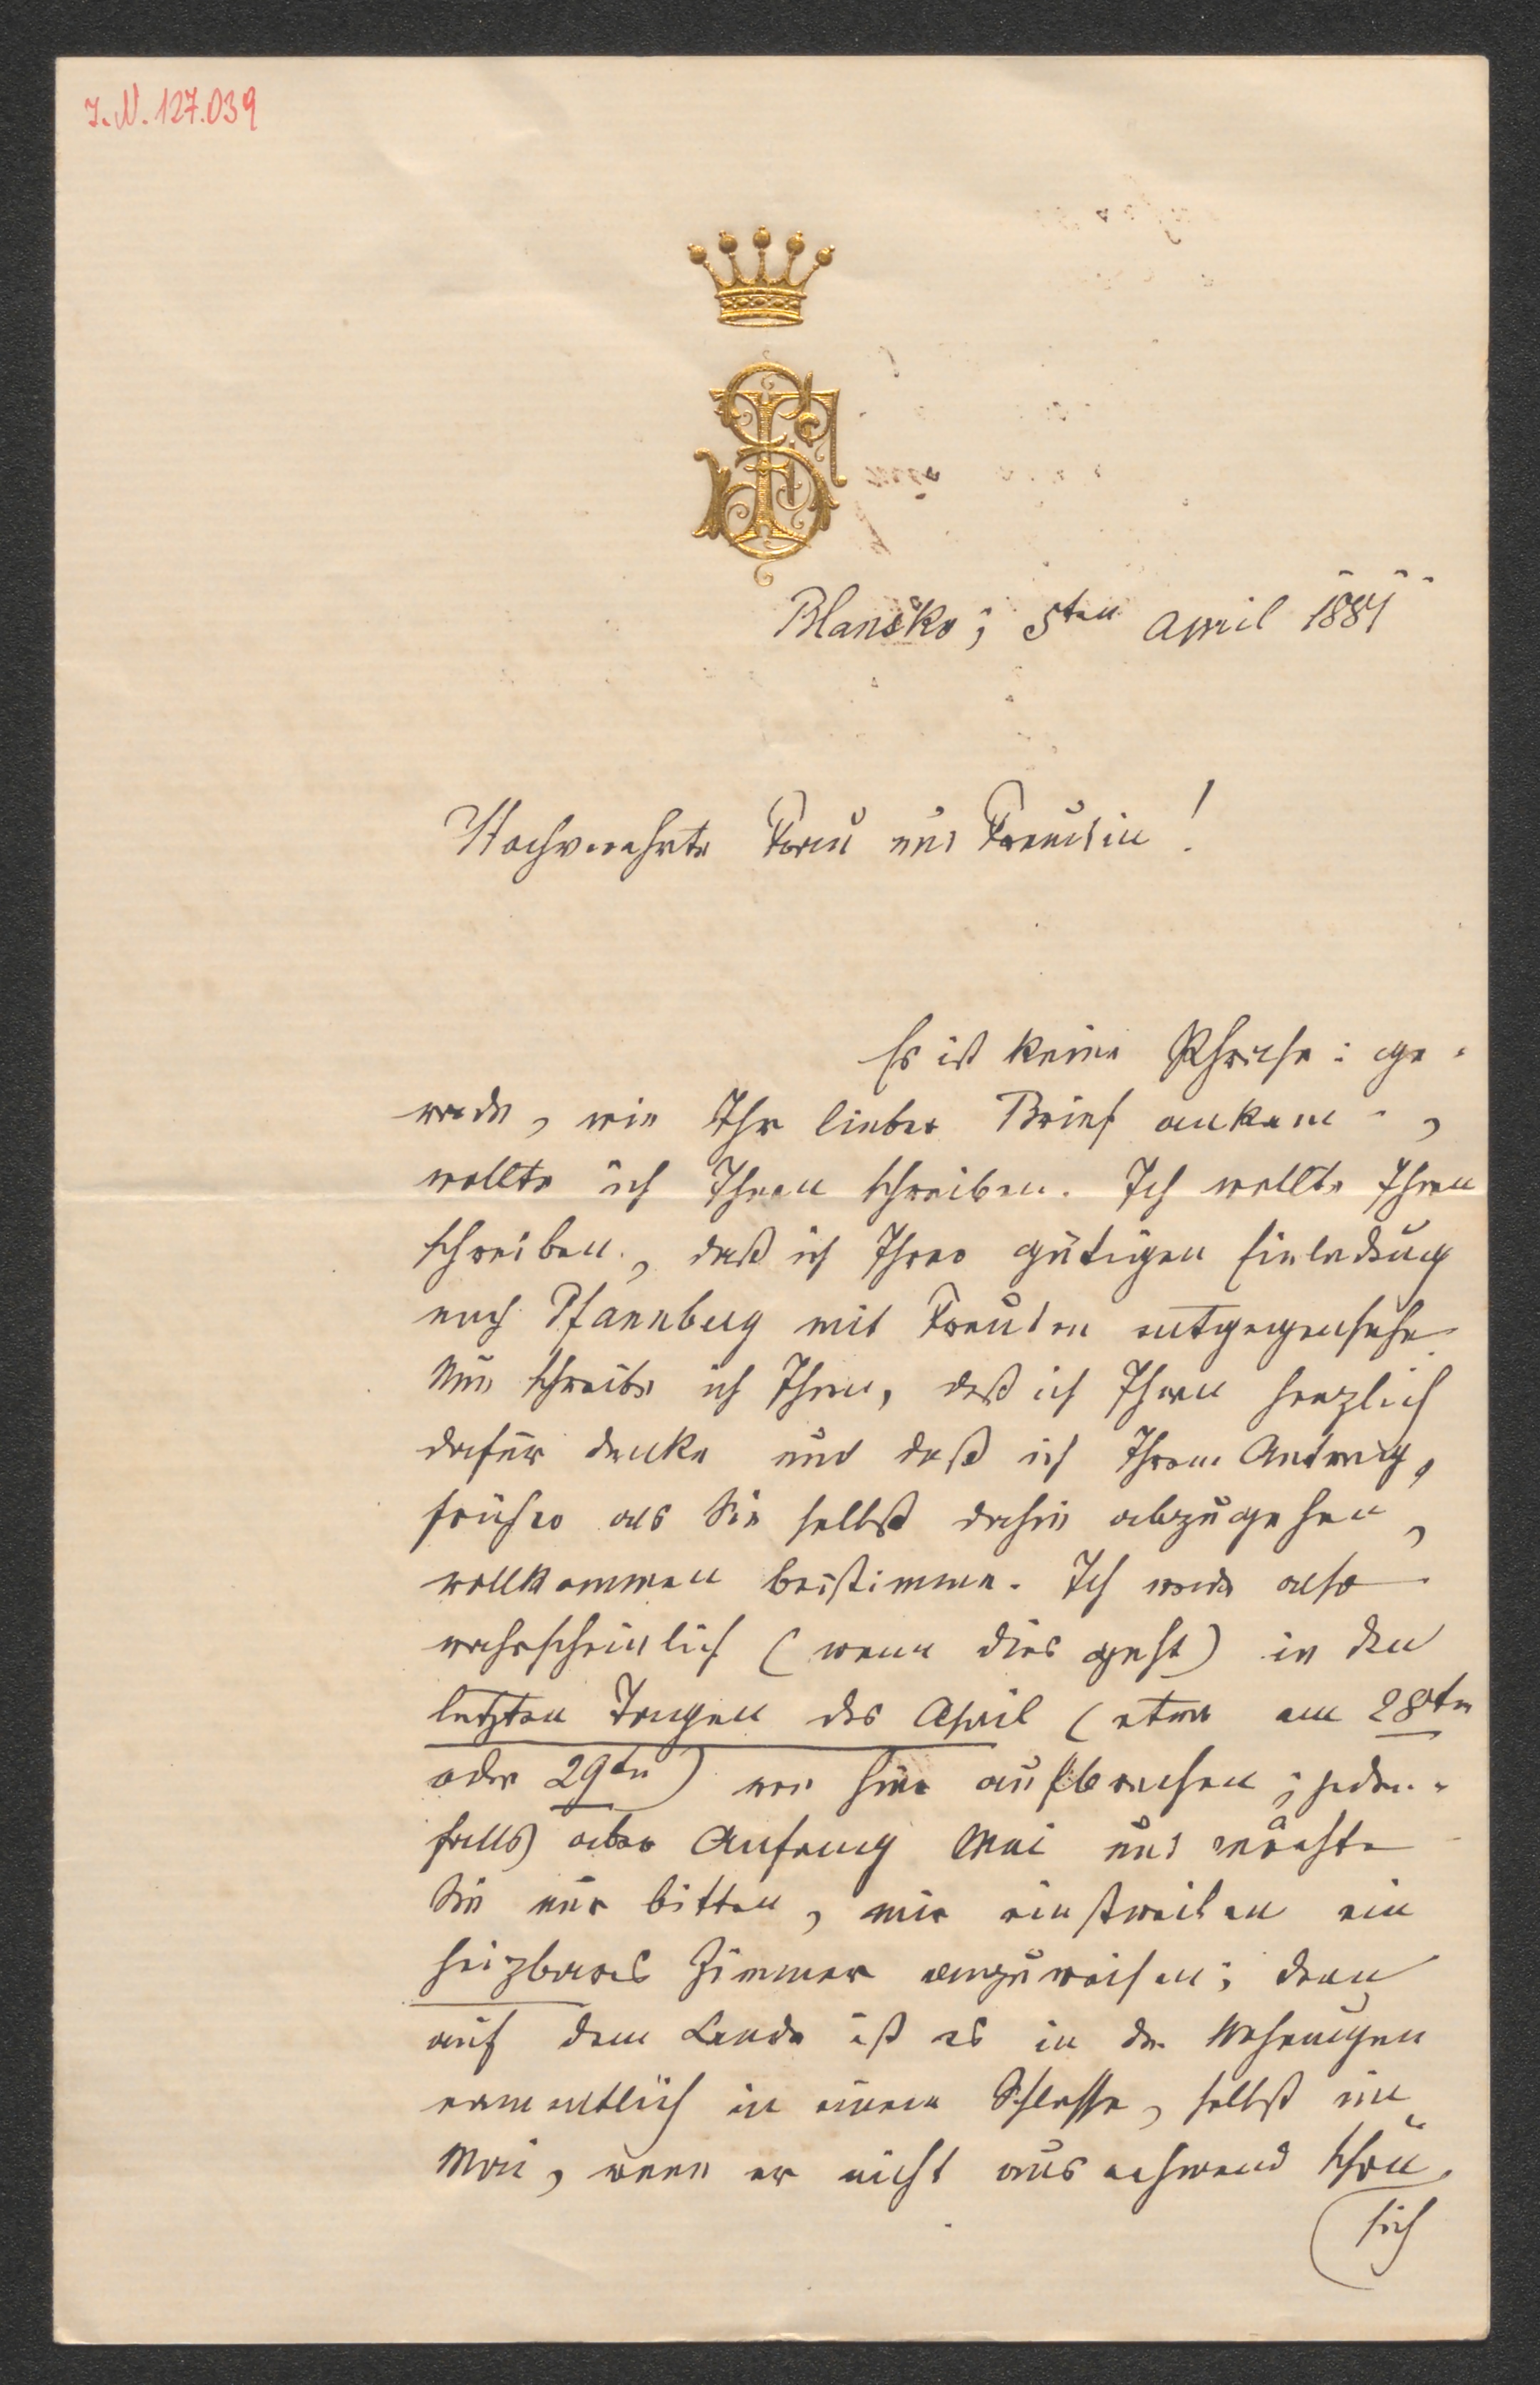 I. N. 127.039
Blansko; 5ten April 1881
Hochverehrte Frau und Freundin!
Es ist keine Phrase: ge-
rade, wie Ihr lieber Brief ankam,
wollte ich Ihnen schreiben. Ich wollte Ihnen
schreiben, daß ich Ihrer gütigen Einladung
nach Pfannberg mit Freuden entgegensehe.
Nun schreibe ich Ihnen, daß ich Ihnen herzlich
dafür danke und daß ich Ihrem Antrag,
früher als Sie selbst dahin abzugehen,
vollkommen beistimme. Ich werde also
wahrscheinlich (wenn dies geht) in den
letzten Tagen des April (etwa am 28ten
oder 29ten) von hier aufbrechen; jeden-
falls aber Anfang Mai und möchte
Sie nur bitten, mir einstweilen ein
heizbares Zimmer anzuweisen; denn
auf dem Lande ist es in den Wohnungen
namentlich in einem Schlosse, selbst im
Mai, wenn er nicht ausnehmend schön,
sich